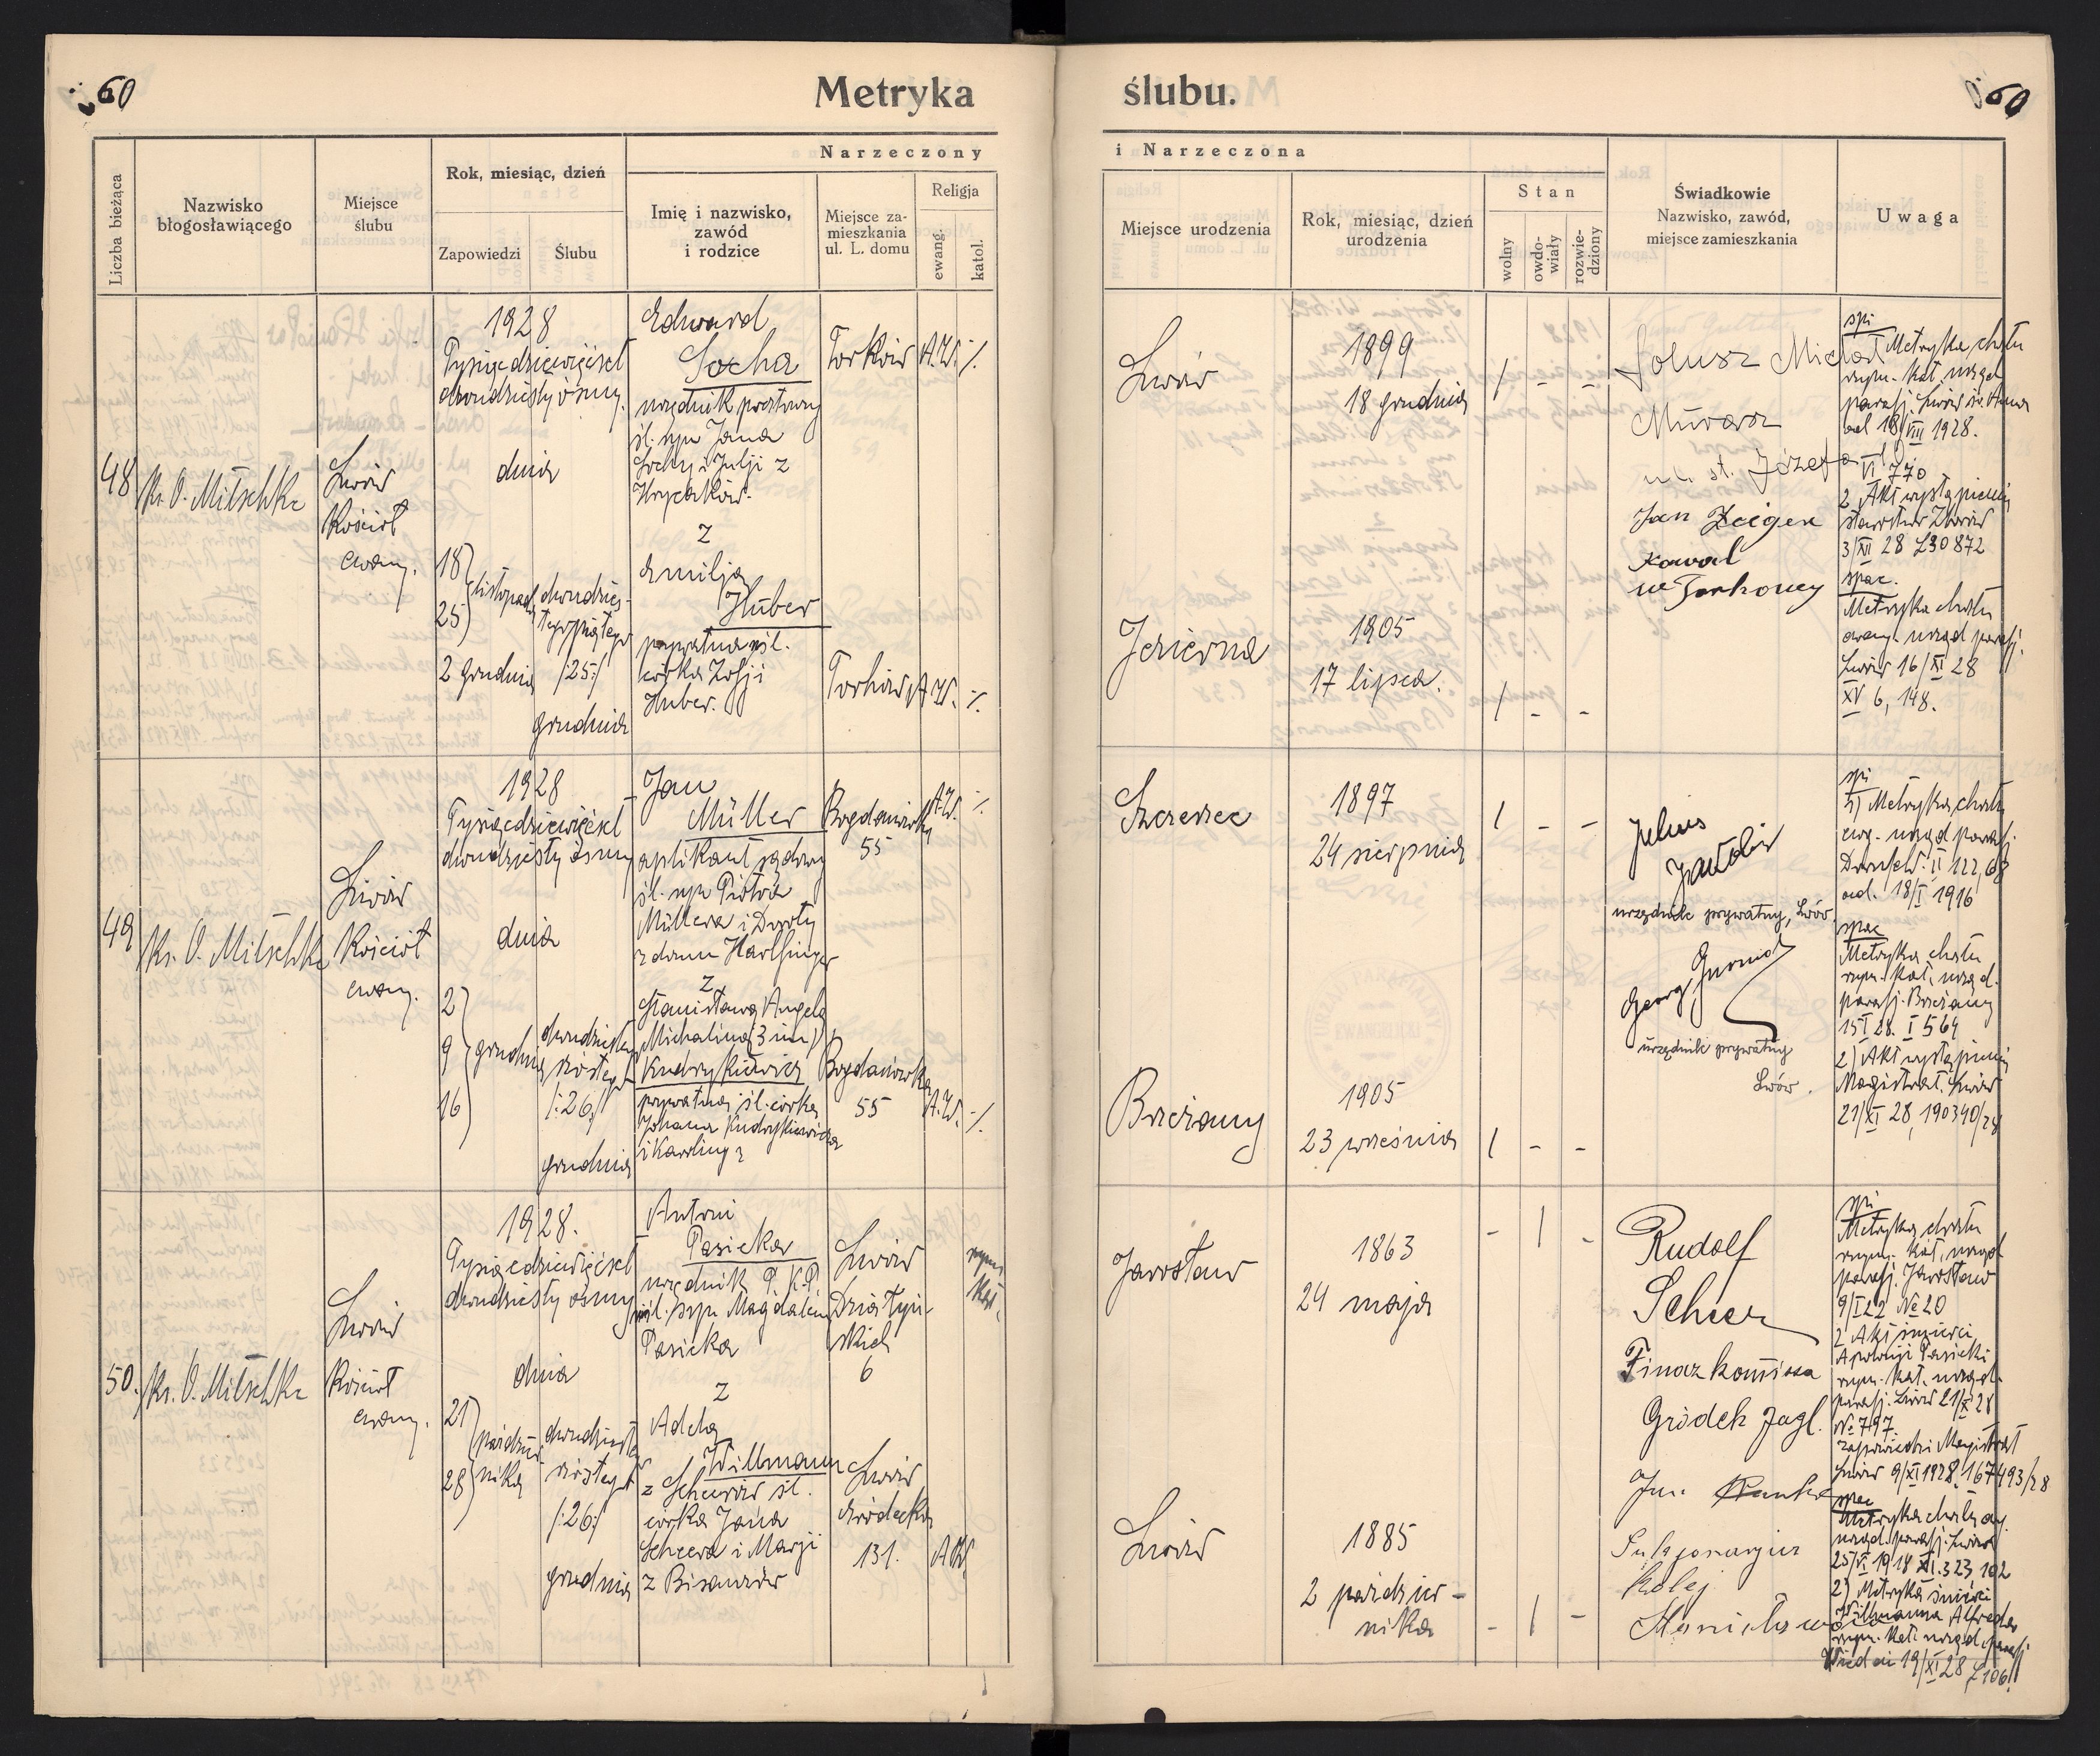 60
Metryka
ślubu.
60
Liczba bieżąca
Nazwisko
błogosławiącego
Miejsce
ślubu
Rok, miesiąc, dzień
Zapowiedzi
Ślubu
Narzeczony
Imię i nazwisko,
zawód
i rodzice
Miejsce za-
mieszkania
ul. L. domu
Religja
ewang.
katol.
i Narzeczona
Miejsce urodzenia
Rok, miesiąc, dzień
urodzenia
Stan
wolny
owdo-
wiały
rozwie-
dziony
Świadkowie
Nazwisko, zawód,
miejsce zamieszkania
Uwaga
48
Ks. O. Mitschke
Lwów
Kościół
ewang.
1928
Tysiącdziewięćset
dwudziesty ósmy.
dnia
18
25
listopada
2 grudnia
dwudzies-
tego piątego
/25/
grudnia
Edward
Socha
urzędnik pocztowy
śl. syn Jana
Sochy i Julji z
Hrycaków.
z
Emilja
Huber
prywatna śl.
córka Zofji
Huber.
Torków
A.W.
%
Torków
A.W.
%
Lwów
1899
18 grudnia
/ - -
Jezierna
1905
17 lipca.
/ - -
Solusz Michał
Murarz
ul. st. Józefa
Jan Zeiger
Kowal
w Torkowy
spi
Metryka chrztu
rzym. kat. urząd
parafj. Lwów św. Anna
od 18/VIII 1928.
VI 770
2, Akt wystąpienia
starostwo Złoczów
3/XI 28 L30872
spac.
Metryka chrztu
ewang. urząd parafj.
Lwów 16/XI 28
XV 6, 148.
49
Ks. O. Mitschke
Lwów
Kościół
ewang.
1928
Tysiącdziewięćset
dwudziesty ósmy
dnia
2
9
16
grudnia
dwudziestego
szóstego
/:26:/
grudnia
Jan
Müller
aplikant sądowy
śl. syn Piotra
Müllera i Doroty
z domu Hartfinger
z
Stanisława Angela
Michalina (3 im)
Kudrykiewicz
prywatna, śl. córka
Johana Kudrykiewicza
i Karoliny z
Bogdanówka
55
A.W.
%
Bogdanówka
55
A.W.
%
Szczerzec
1897
24 sierpnia
/ - -
Brzeżany
1905
23 września
/ - -
Julius
Jakobi
urzędnik prywatny, Lwów.
Georg
urzędnik prywatny
Lwów.
spi
1) Metryka chrztu
ewg. urząd parafj.
Dornfeld II 122,68
ad. 18/I 1916
spac
Metryka chrztu
rzym. kat. urząd.
parafj. Brzeżany
15/I 28. I 564
2) Akt wystąpienia
Magistrat Lwów
21/XI 28, 190340/28
50.
Ks. O. Mitschke
Lwów
Kościół
ewang.
1928.
Tysiącdziewięćset
dwudziesty ósmy
dnia
21
28
paździer-
nika
dwudziestego
szóstego
/:26:/
grudnia
Antoni
Pasieka
urzędnik P. K.P.
śl. syn Magdaleny
Pasieka
z
Adela
Willmann
z Scheerów śl.
córka Jana
Scheera i Marji
z Bisanzów
Lwów
Działyń-
skich
6
rzym.
kat.
Lwów
Gródecka
131.
A.W.
Jarosław
1863
24 maja
- / -
Lwów
1885
2 paździer-
nika
- / -
Rudolf
Scheer
Finaz komissa
Gródek Jagl.
Jan
kolej
Stanisławów
spi
Metryka chrztu
rzym. kat. urząd
parafj. Jarosław
9/I 22 № 20
2 Akt śmierci
Apolonji Pasieki
rzym. kat. urząd.
parafj. Lwów 21/X 28
№ 797.
zapowiedzi Magistrat
Lwów 9/XI 1928, 167493/28
spac
Metryka chrztu ewg.
urząd parafj. Lwów
25/VI 1914 XI. 323, 102
2) Metryka śmierci
Willmanna Alfreda
rzym. kat. urząd parafj
Wiedeń 19/XI 28 L106.